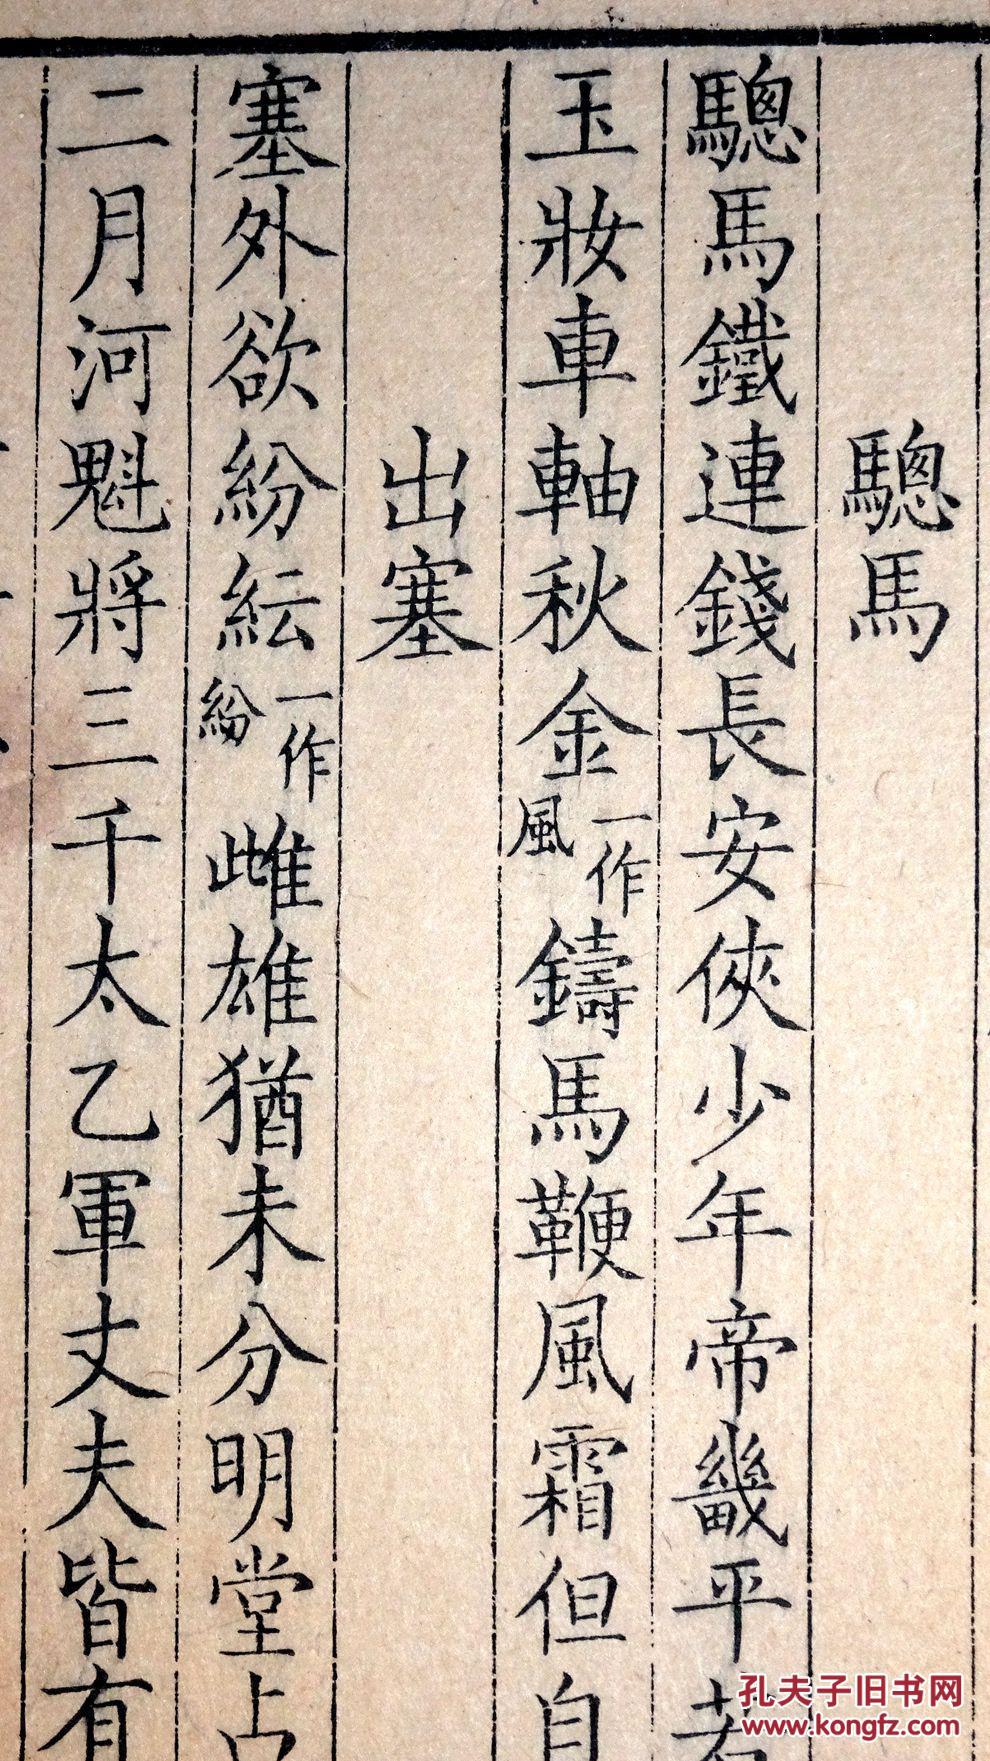 驄馬
驄馬鐵連錢長安俠少年帝畿平若
玉妝車軸秋金一作風鑄馬鞭風霜但自
出塞
塞外欲紛紜一作紛雌雄猶未分明堂占
二月河魁將三千太乙軍丈夫皆有
孔夫子旧书网
www.kongfz.com